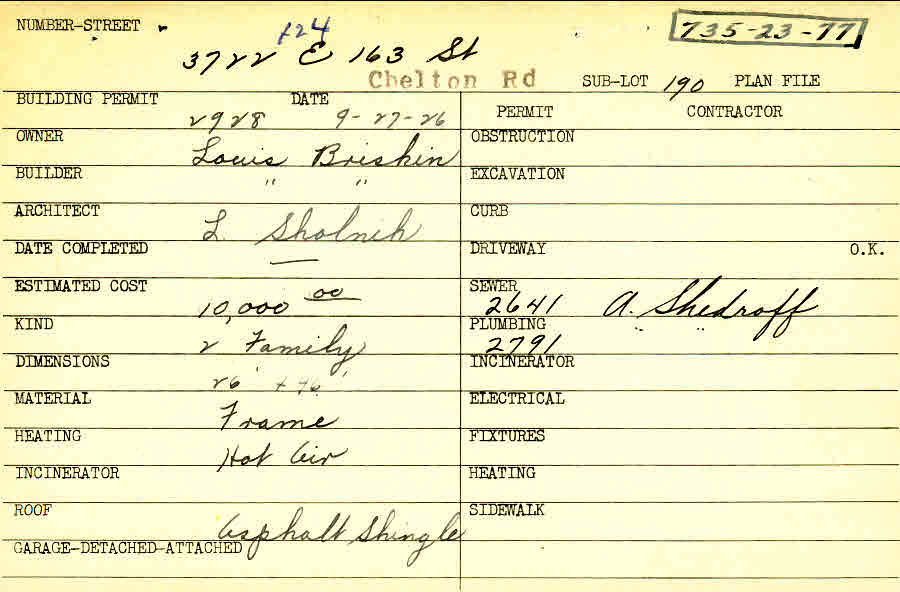 NUMBER-STREET +24 735-23-77
3722 E 163 St
Chelton Rd SUB-LOT 190 PLAN FILE
BUILDING PERMIT DATE PERMIT CONTRACTOR
2928 9-27-26
OWNER Louis Briskin OBSTRUCTION
BUILDER " " EXCAVATION
ARCHITECT L. Skolnik CURB
DATE COMPLETED — DRIVEWAY O.K.
ESTIMATED COST 10,000 00 SEWER 2641 A. Shedroff
KIND 2 Family PLUMBING 2791 " "
DIMENSIONS 26' INCINERATOR
MATERIAL Frame ELECTRICAL
HEATING Hot Air FIXTURES
INCINERATOR HEATING
ROOF Asphalt Shingle SIDEWALK
GARAGE-DETACHED-ATTACHED